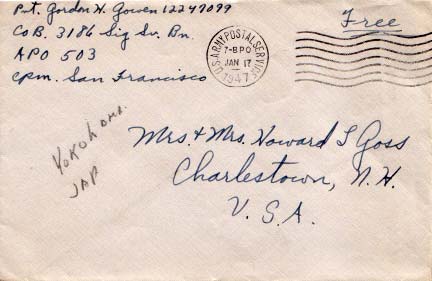 Pvt. Gordon H. Gowen 12247099
Co B. 3186 Sig Sv. Bn.
APO 503
cpm. San Francisco
Free
U.S. ARMY POSTAL SERVICE
7-8 PO
JAN 17
1947
Yokohama
JAP
Mrs. + Mrs. Howard S Goss
Charlestown, N.H.
U.S.A.